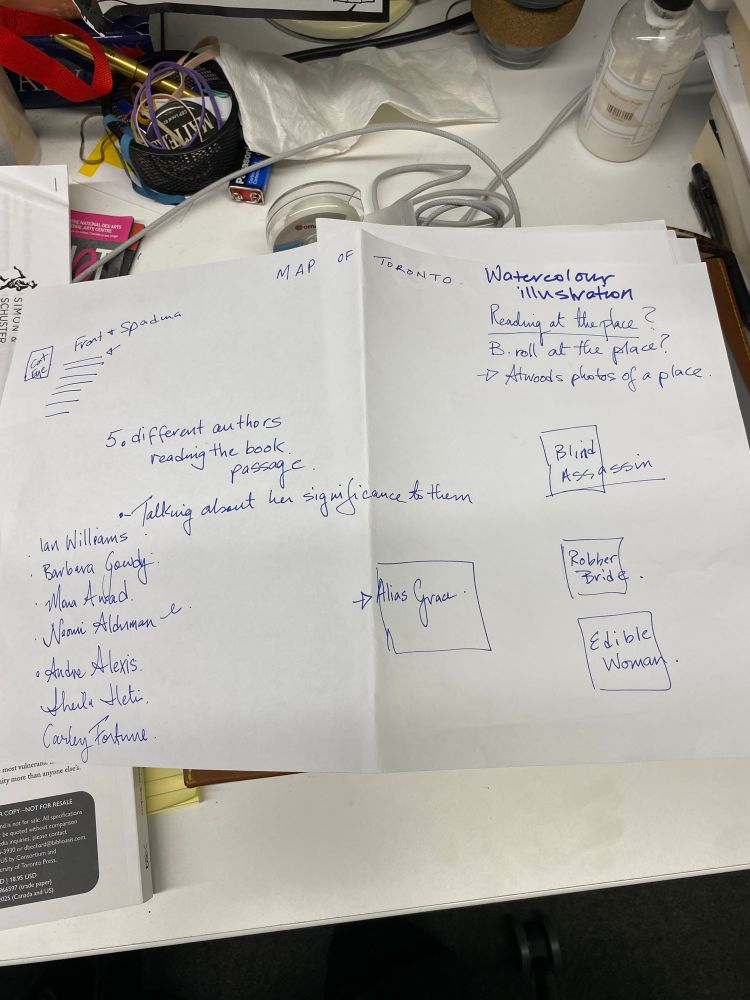 MAP OF TORONTO.
Watercolour
illustration
Reading at the place?
B.roll at the place?
→ Atwoods photos of a place.
Cat
Eye
Front & Spadina
5. different authors
reading the book
passage.
- Talking about her significance to them
Ian Williams
Barbara Gowdy.
Mona Awad.
Naomi Alderman
Andre Alexis.
Sheila Heti.
Carley Fortune.
Alias Grace.
Blind
Assassin
Robber
Bride.
Edible
Woman.
SIMON &
SCHUSTER
NATIONAL DES ARTS
NATIONAL ARTS CENTRE
most vulnerable
ity more than anyone else's.
R COPY—NOT FOR RESALE
nd is not for sale. All specifications
be quoted without comparison
dia inquiries, please contact
-3930 or dbechard@biblioasis.com.
US by Consortium and
versity of Toronto Press.
D | 18.95 USD
966597 (trade paper)
2025 (Canada and US)